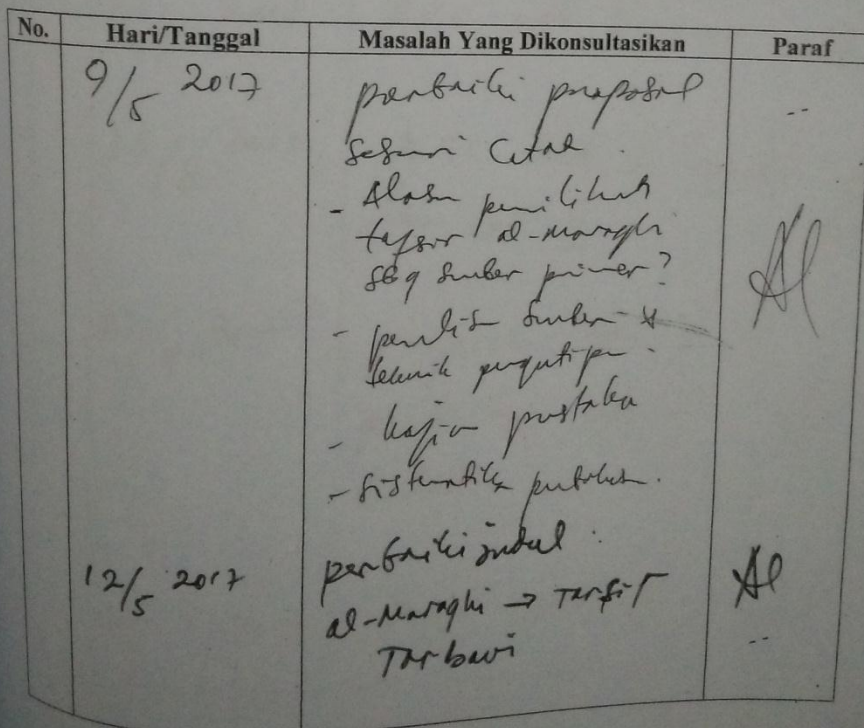 No. Hari/Tanggal Masalah Yang Dikonsultasikan Paraf
9/5 2017 perbaiki proposal
sesuai
- Alasan pemilihan
tafsir al-Maraghi
sbg sumber primer?
- sumber
teknik pengutipan.
- kajian pustaka
- sistematika
12/5 2017 perbaiki judul :
al-Maraghi → Tarsir
Tarbawi